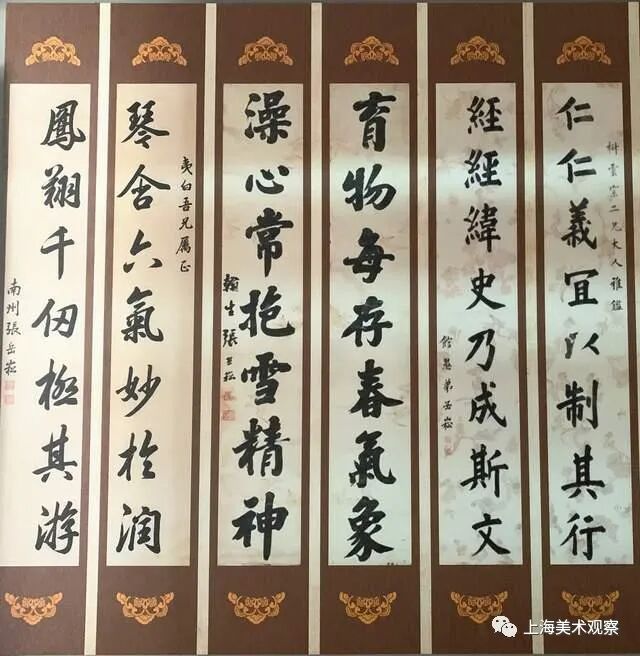 二兄大人雅鑑
仁仁義冝以制其行
經經緯史乃成斯文
館愚弟岳崧
育物每存春氣象
澡心常抱雪精神
翰生張岳崧
夷白吾兄屬正
琴含六氣妙於潤
鳳翔千仞極其游
南州張岳崧
上海美术观察